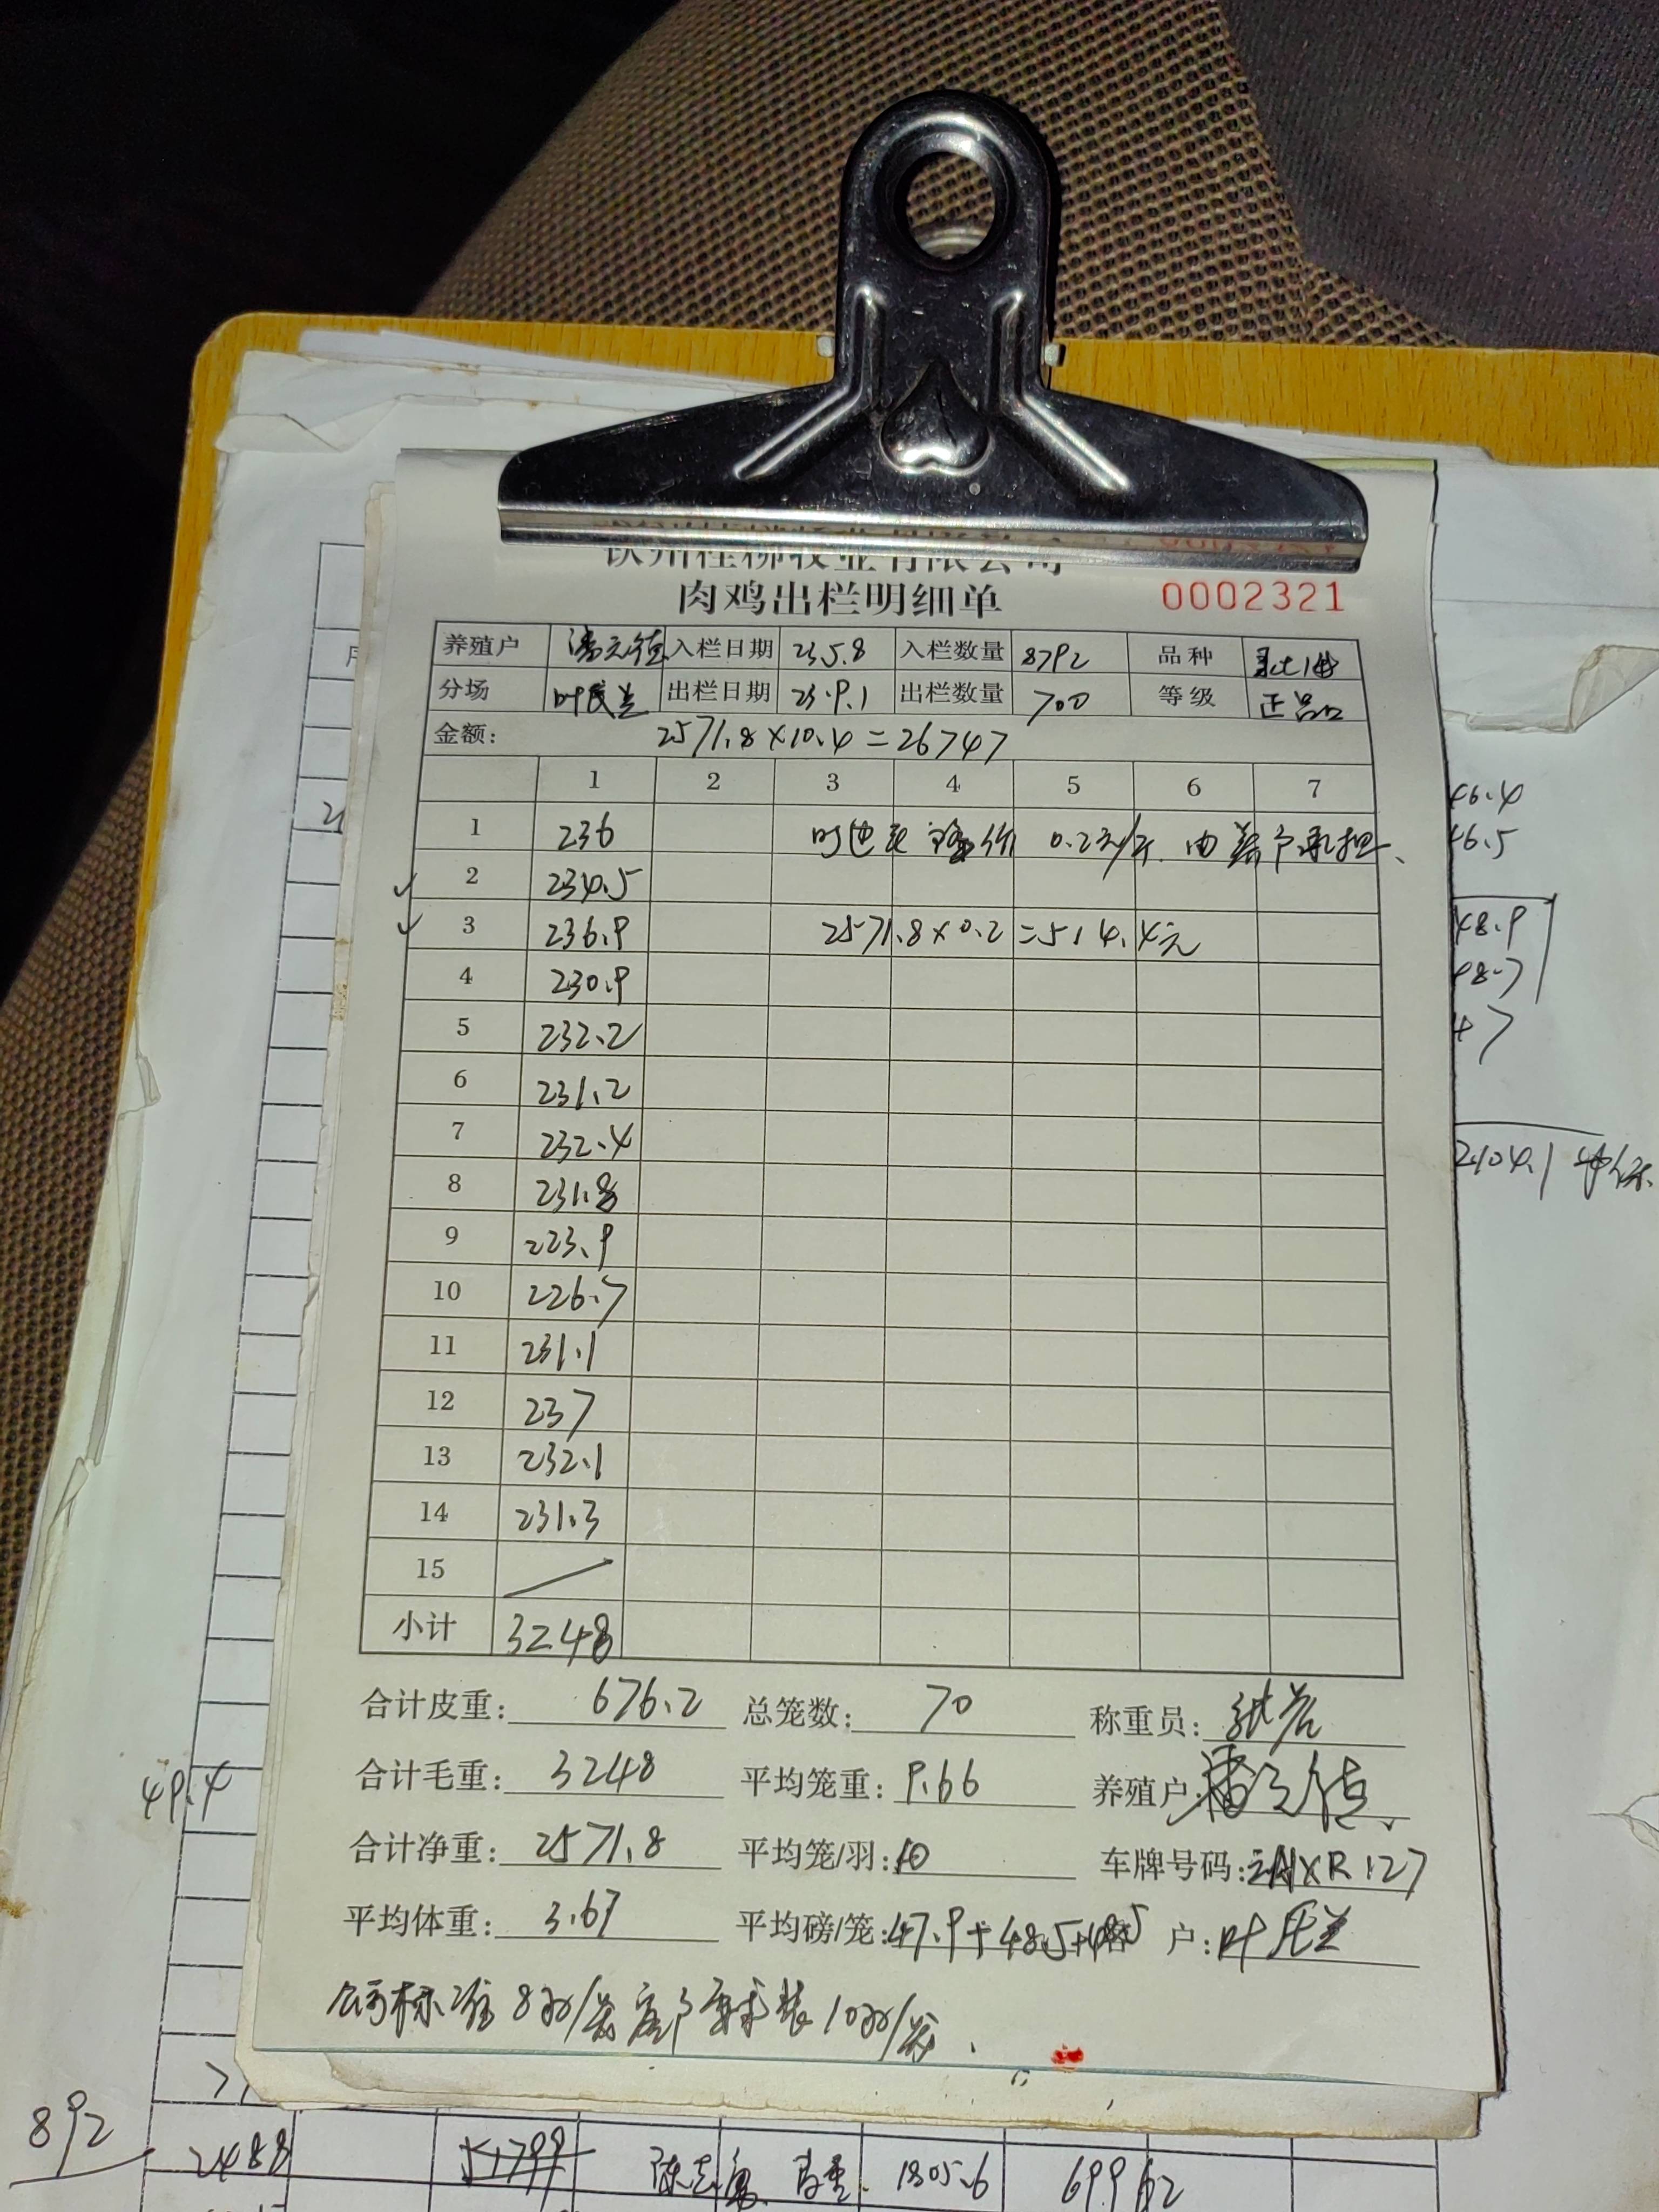 钦州桂柳牧业有限公司
肉鸡出栏明细单 0002321
养殖户 潘元德 入栏日期 23.5.8 入栏数量 8792 品种
分场 叶民兰 出栏日期 23.9.1 出栏数量 700 等级 正品
金额: 2571.8×10.4=26747
1 2 3 4 5 6 7
1 236 降价 0.2元/斤. 由养户承担、
2 234.5
3 236.9 2571.8×0.2=514.4元
4 230.9
5 232.2
6 231.2
7 232.4
8 231.8
9 223.9
10 226.7
11 231.1
12 237
13 232.1
14 231.3
15
小计 3248
合计皮重: 676.2 总笼数: 70 称重员:
合计毛重: 3248 平均笼重: 9.66 养殖户: 潘元德
合计净重: 2571.8 平均笼/羽: 10 车牌号码: XR127
平均体重: 3.67 平均磅/笼: 47.9+48.5+48.5 户: 叶民兰
标准8羽/笼 客户要求装10羽/笼.
46.4
46.5
48.9
48.7
47
2104.1
49.4
892
2488 1805.6 699 62